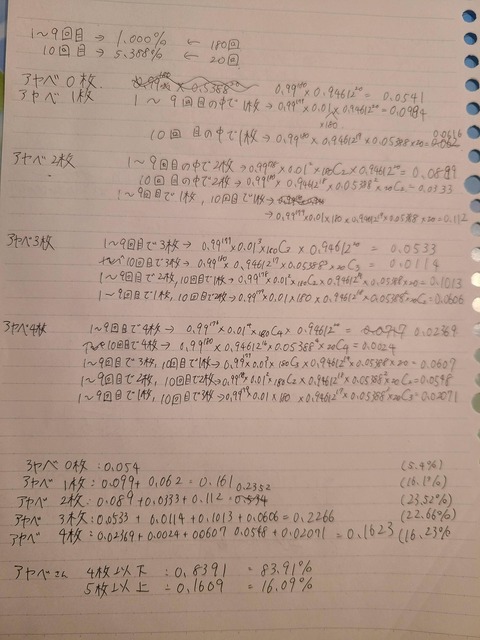 1～9回目 → 1.000% ← 180回
10回目 → 5.388% ← 20回
アヤベ 0枚 0.99¹⁸⁰ × 0.94612²⁰ = 0.0541
アヤベ 1枚 1～9回目の中で1枚 → 0.99¹⁷⁹ × 0.01 × 0.94612²⁰ = 0.0984
×180
10回目の中で1枚 → 0.99¹⁸⁰ × 0.94612¹⁹ × 0.05388 × 20 = 0.0616
アヤベ 2枚 1～9回目の中で2枚 → 0.99¹⁷⁸ × 0.01² × ₁₈₀C₂ × 0.94612²⁰ = 0.0889
10回目の中で2枚 → 0.99¹⁸⁰ × 0.94612¹⁸ × 0.05388² × ₂₀C₂ = 0.0333
1～9回目で1枚, 10回目で1枚
→ 0.99¹⁷⁹ × 0.01 × 180 × 0.94612¹⁹ × 0.05388 × 20 = 0.112
アヤベ 3枚 1～9回目で3枚 → 0.99¹⁷⁷ × 0.01³ × ₁₈₀C₃ × 0.94612²⁰ = 0.0533
10回目で3枚 → 0.99¹⁸⁰ × 0.94612¹⁷ × 0.05388³ × ₂₀C₃ = 0.0114
1～9回目で2枚, 10回目で1枚 → 0.99¹⁷⁸ × 0.01² × ₁₈₀C₂ × 0.94612¹⁹ × 0.05388 × 20 = 0.1013
1～9回目で1枚, 10回目で2枚 → 0.99¹⁷⁹ × 0.01 × 180 × 0.94612¹⁸ × 0.05388² × ₂₀C₂ = 0.0606
アヤベ 4枚 1～9回目で4枚 → 0.99¹⁷⁶ × 0.01⁴ × ₁₈₀C₄ × 0.94612²⁰ = 0.02369
10回目で4枚 → 0.99¹⁸⁰ × 0.94612¹⁶ × 0.05388⁴ × ₂₀C₄ = 0.0024
1～9回目で3枚, 10回目で1枚 → 0.99¹⁷⁷ × 0.01³ × ₁₈₀C₃ × 0.94612¹⁹ × 0.05388 × 20 = 0.0607
1～9回目で2枚, 10回目で2枚 → 0.99¹⁷⁸ × 0.01² × ₁₈₀C₂ × 0.94612¹⁸ × 0.05388² × ₂₀C₂ = 0.0548
1～9回目で1枚, 10回目で3枚 → 0.99¹⁷⁹ × 0.01 × 180 × 0.94612¹⁷ × 0.05388³ × ₂₀C₃ = 0.02071
アヤベ 0枚 : 0.054 (5.4%)
アヤベ 1枚 : 0.099 + 0.062 = 0.161 (16.1%)
アヤベ 2枚 : 0.089 + 0.0333 + 0.112 = 0.2352 (23.52%)
アヤベ 3枚 : 0.0533 + 0.0114 + 0.1013 + 0.0606 = 0.2266 (22.66%)
アヤベ 4枚 : 0.02369 + 0.0024 + 0.0607 0.0548 + 0.02071 = 0.1623 (16.23%
アヤベさん 4枚以下 : 0.8391 = 83.91%
5枚以上 : 0.1609 = 16.09%